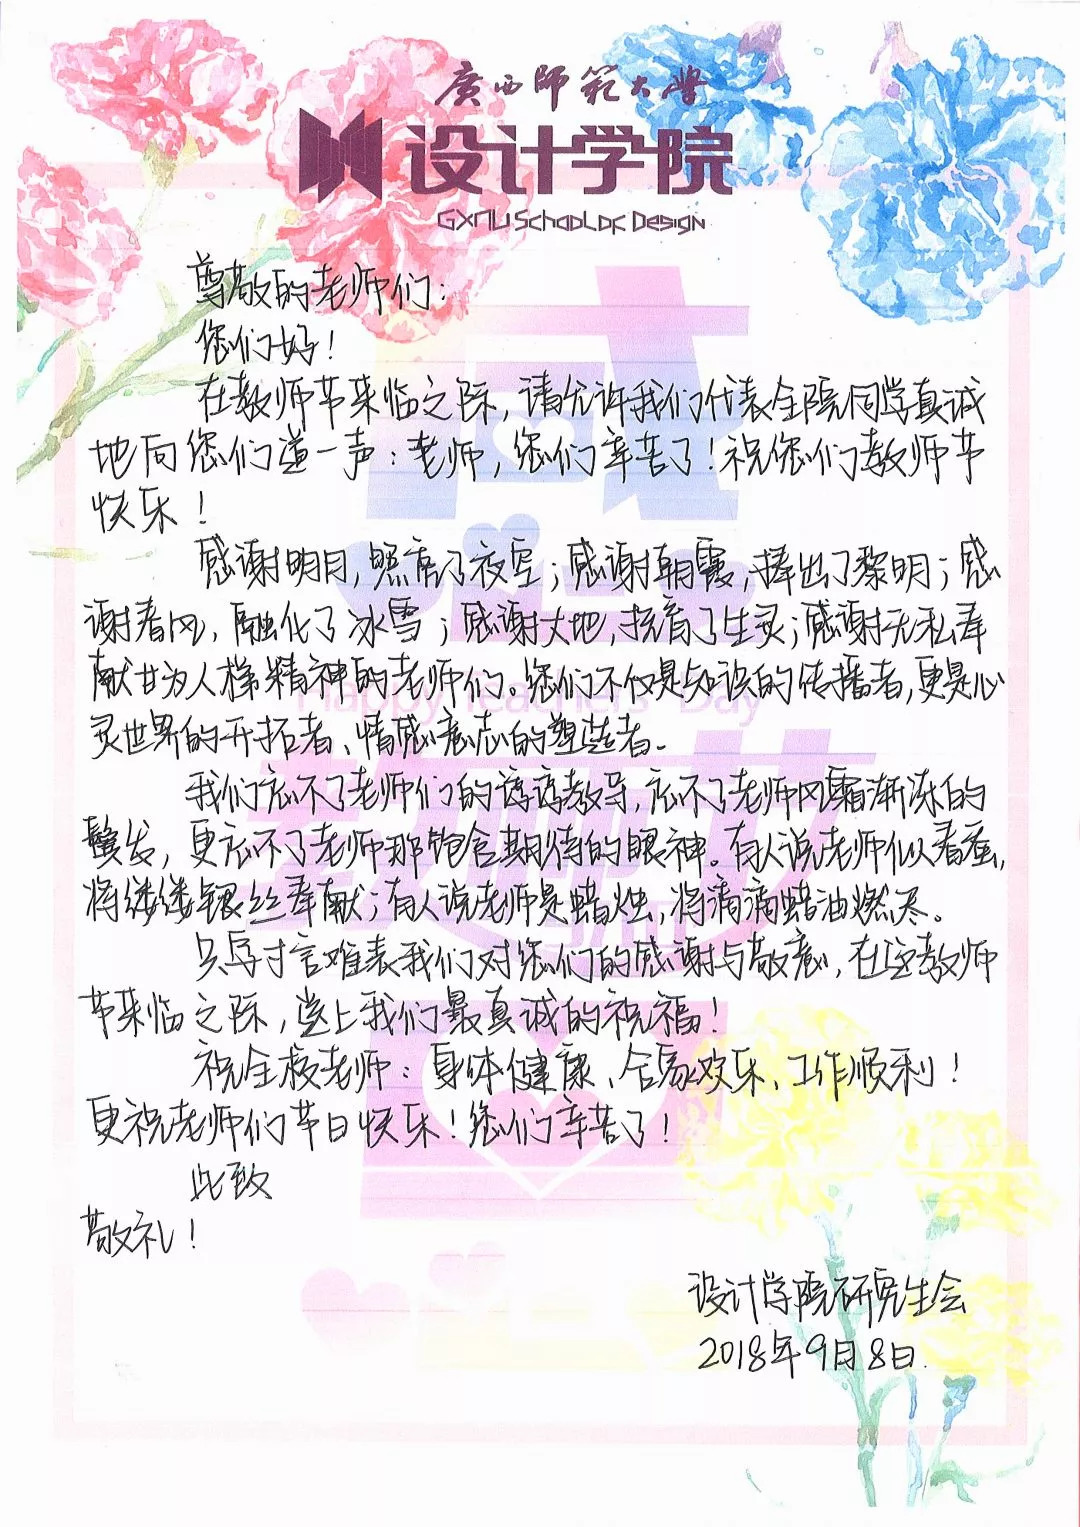 廣西師範大學
设计学院
GXNU School of Design
尊敬的老师们：
您们好！
在教师节来临之际，请允许我们代表全院同学真诚
地向您们道一声：老师，您们辛苦了！祝您们教师节
快乐！
感谢明月，照亮了夜空；感谢朝霞，捧出了黎明；感
谢春风，融化了冰雪；感谢大地，抚育了生灵；感谢无私奉
献甘为人梯精神的老师们。您们不仅是知识的传播者，更是心
灵世界的开拓者、情感意志的塑造者。
我们忘不了老师们的谆谆教导，忘不了老师风霜渐染的
鬓发，更忘不了老师那饱含期待的眼神。有人说老师似春蚕，
将缕缕银丝奉献；有人说老师是蜡烛，将滴滴蜡油燃尽。
只字寸言难表我们对您们的感谢与敬意，在这教师
节来临之际，送上我们最真诚的祝福！
祝全校老师：身体健康、合家欢乐、工作顺利！
更祝老师们节日快乐！您们辛苦了！
此致
敬礼！
设计学院研究生会
2018年9月8日.
感
恩
Happy Teachers' Day
教师节